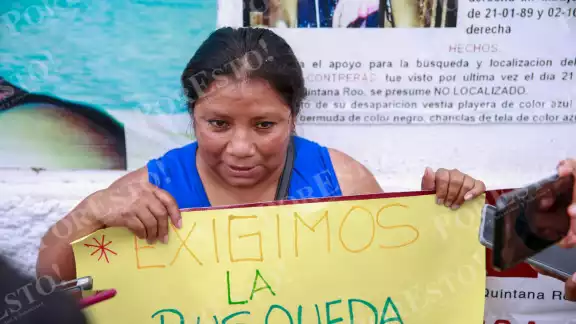 de 21-01-89 y 02-10
derecha
HECHOS.
el apoyo para la búsqueda y localización del
CONTRERAS, fue visto por ultima vez el día 21
Quintana Roo, se presume NO LOCALIZADO.
de su desaparición vestía playera de color azul
bermuda de color negro, chanclas de tela de color azul
*EXIGIMOS
LA
BUSQUEDA
Quintana Roo
PORESTO!